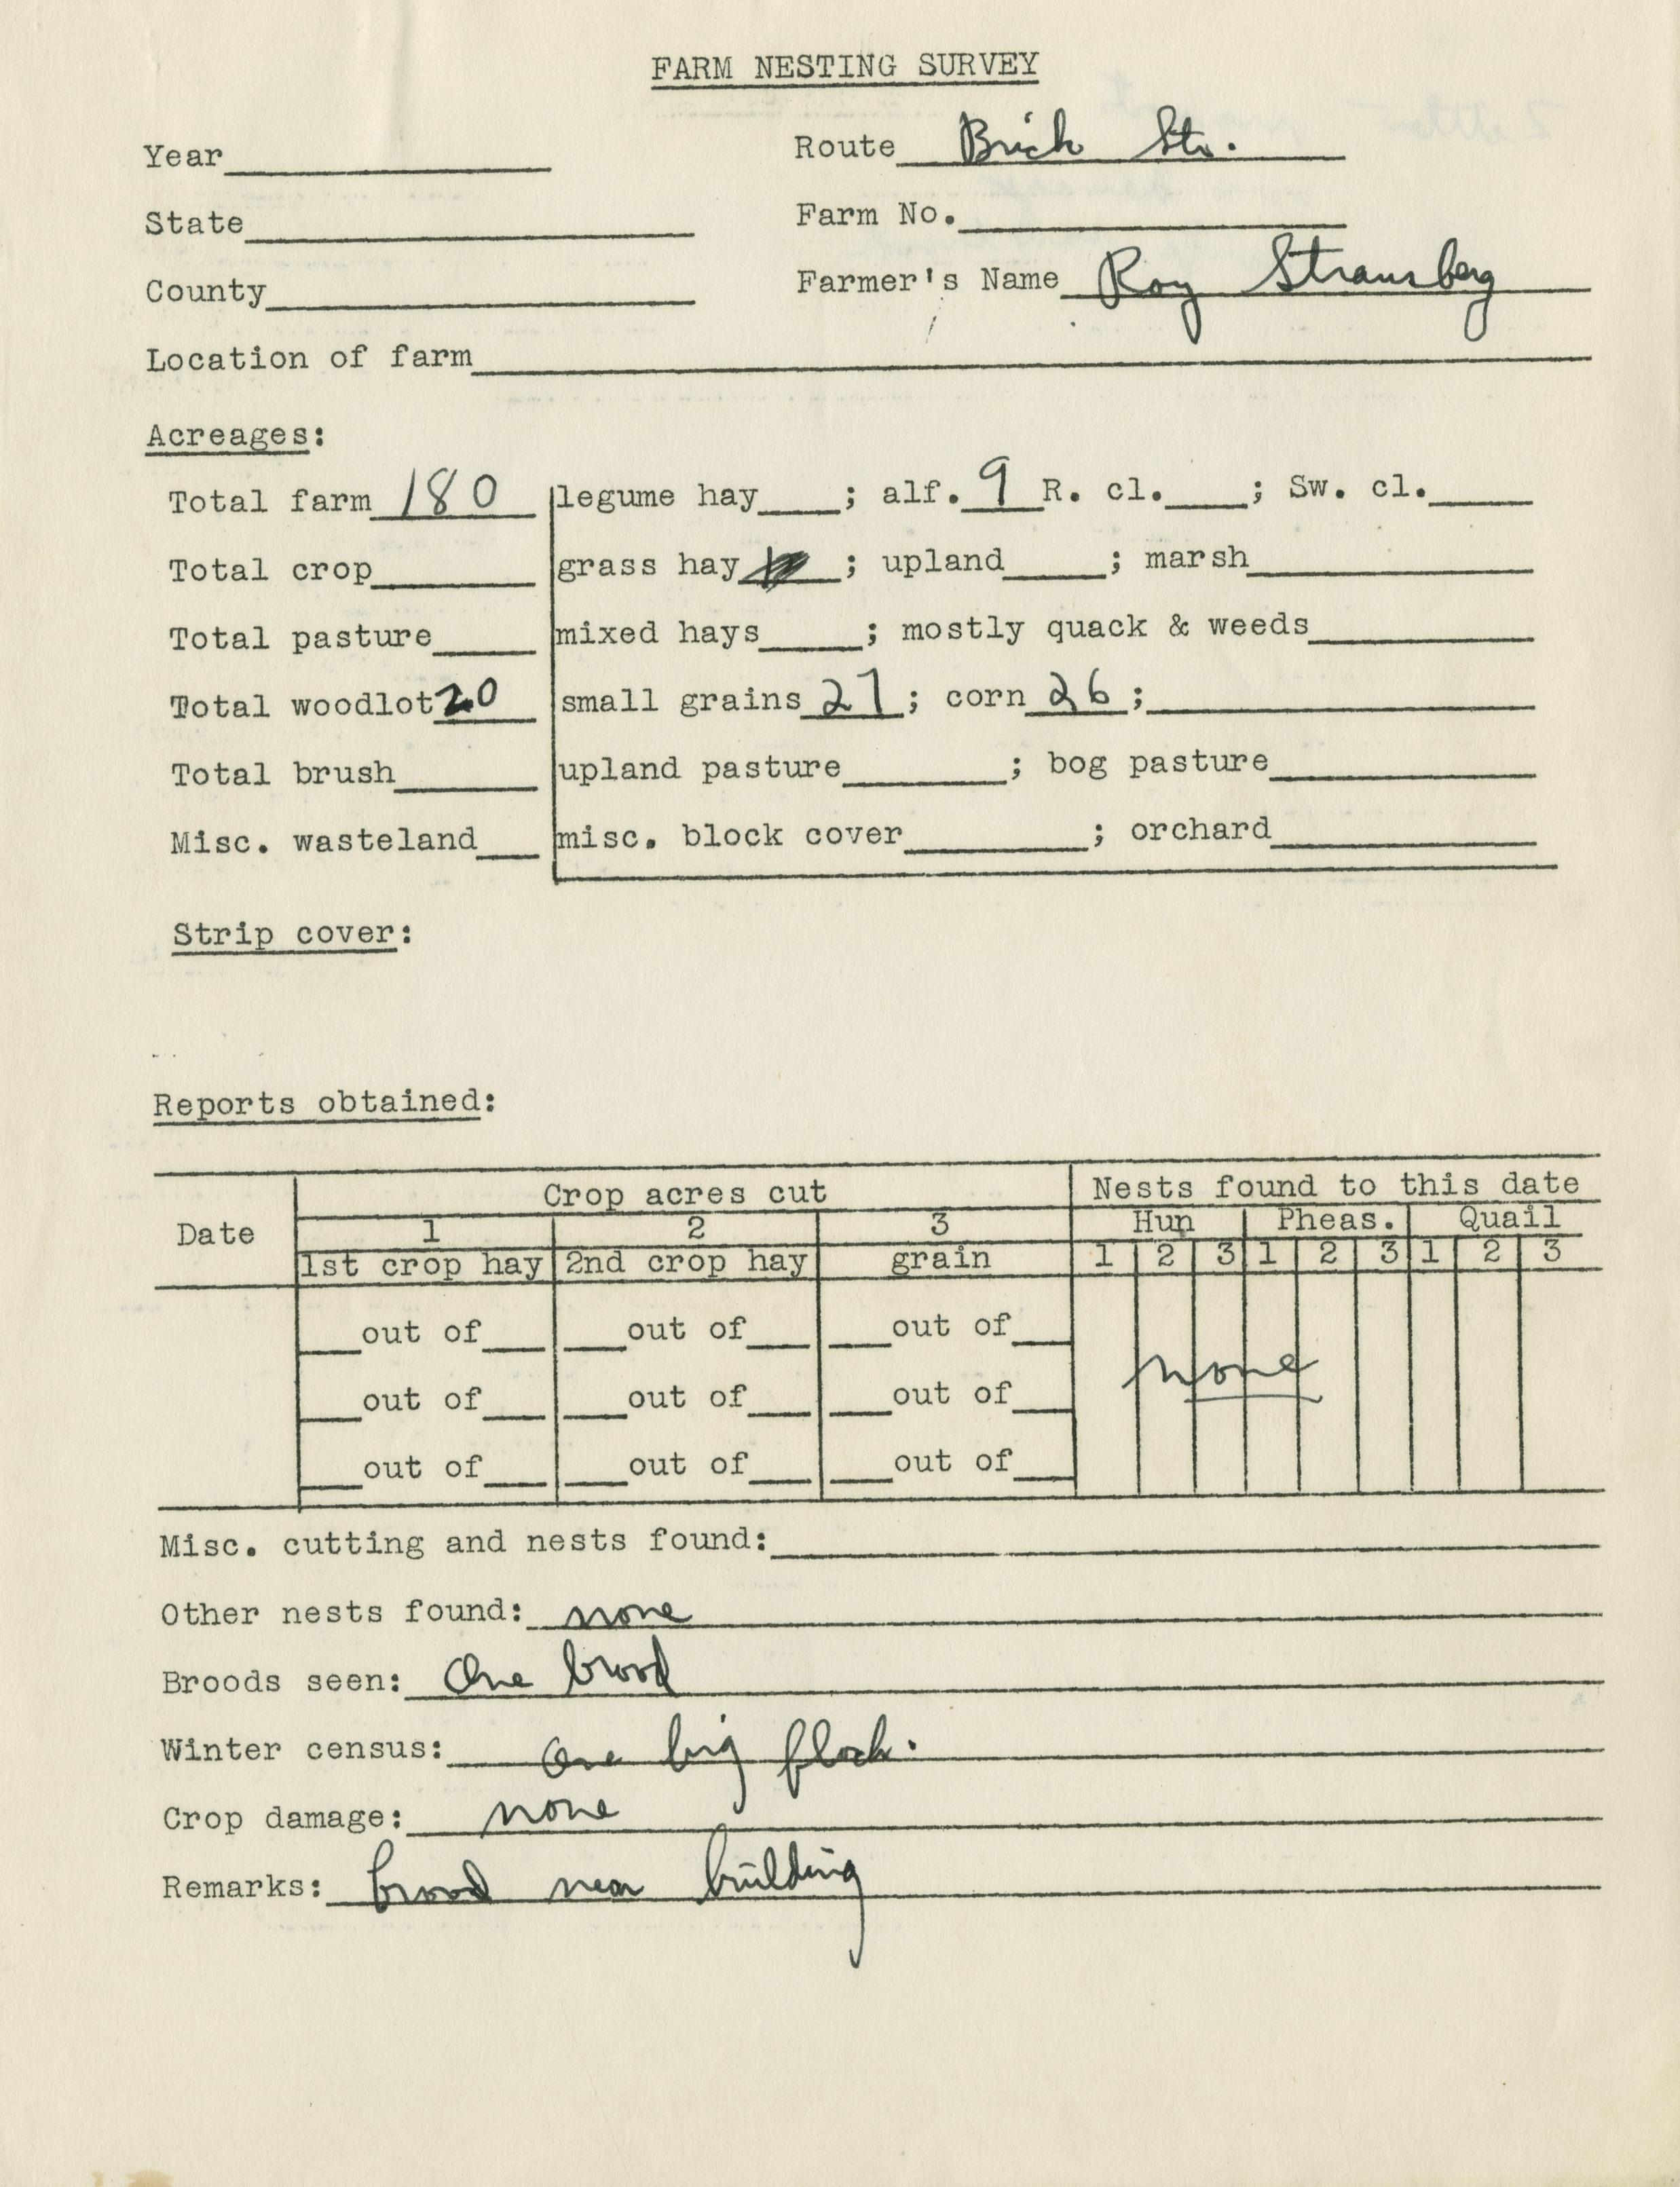 FARM NESTING SURVEY
Year Route Brick Str.
State Farm No.
County Farmer's Name Roy Strausberg
Location of farm
Acreages:
Total farm 180 legume hay ; alf. 9 R. cl. ; Sw. cl.
Total crop grass hay ; upland ; marsh
Total pasture mixed hays ; mostly quack & weeds
Total woodlot 20 small grains 27 ; corn 26 ;
Total brush upland pasture ; bog pasture
Misc. wasteland misc. block cover ; orchard
Strip cover:
Reports obtained:
Crop acres cut Nests found to this date
Date 1 2 3 Hun Pheas. Quail
1st crop hay 2nd crop hay grain 1 2 3 1 2 3 1 2 3
out of out of out of
none
out of out of out of
out of out of out of
Misc. cutting and nests found:
Other nests found: none
Broods seen: One brood
Winter census: One big flock.
Crop damage: none
Remarks: brood near building